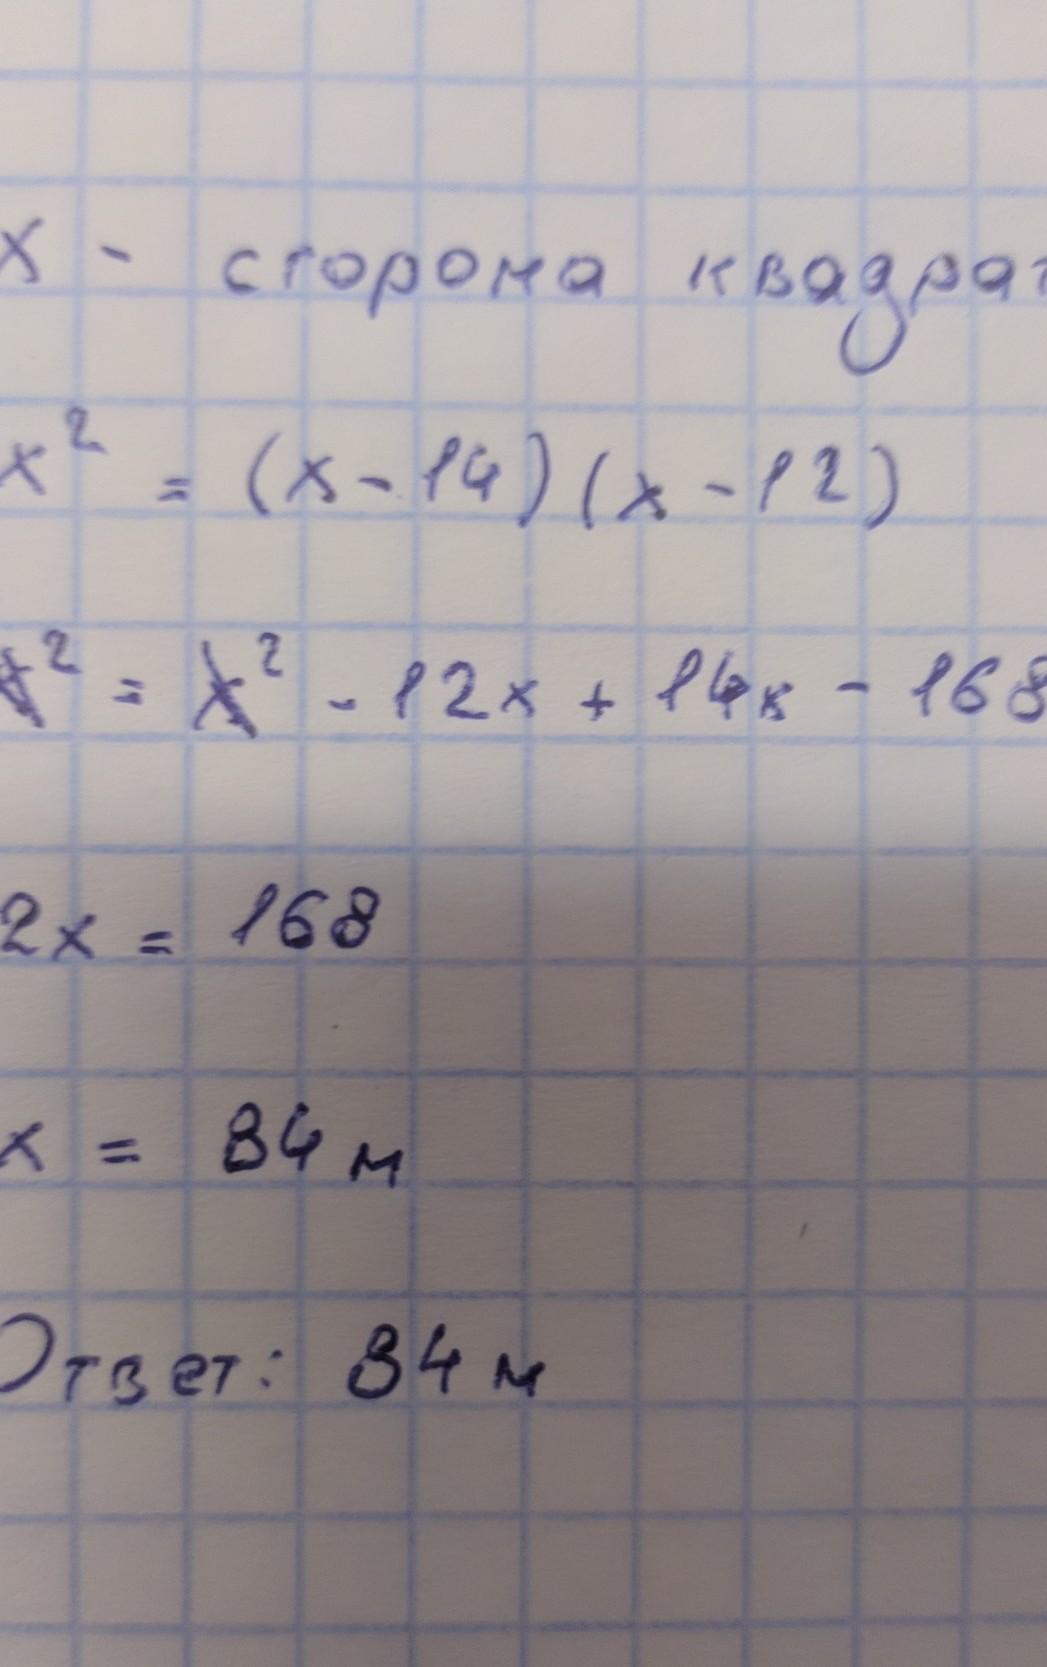 x - сторона квадрат
x² = (x - 14)(x - 12)
x² = x² - 12x + 14x - 168
2x = 168
x = 84 м
Ответ: 84 м